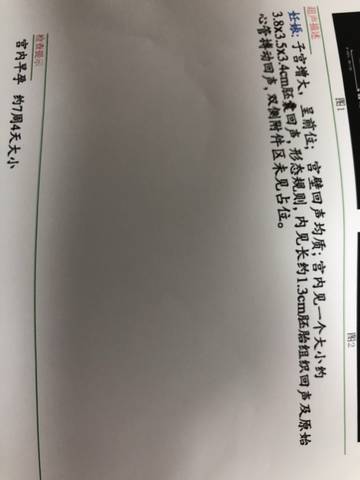 图1
图2
超声描述
妊娠：子宫增大，呈前位；宫壁回声均质；宫内见一个大小约
3.8x3.5x3.4cm胚囊回声，形态规则，内见长约1.3cm胚胎组织回声及原始
心管搏动回声，双侧附件区未见占位。
检查提示
宫内早孕 约7周4天大小